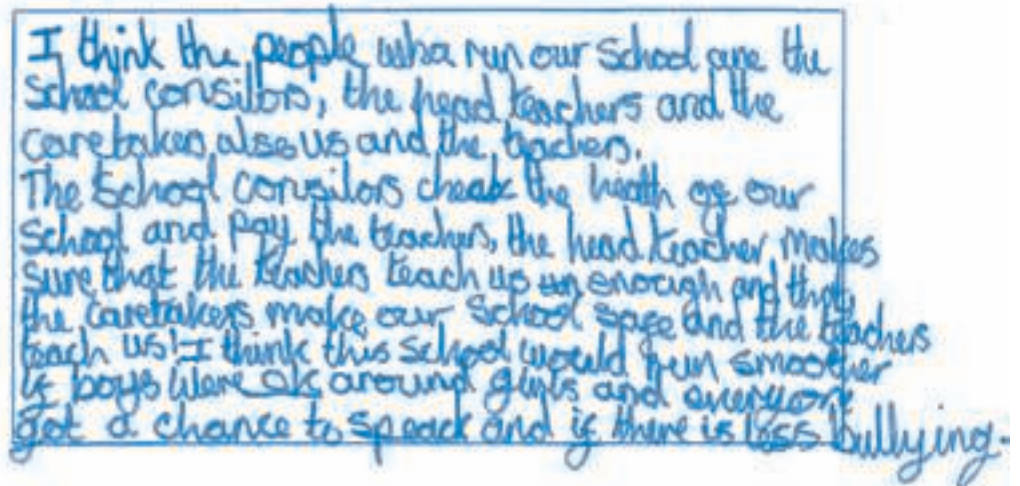 I think the people who run our school are the
School consilors, the head teachers and the
caretakers also us and the teachers.
The School consilors cheak the heath of our
School and pay the teachers, the head teacher makes
sure that the teachers teach us enough and that
the caretakers make our school safe and the teachers
teach us! I think this school would run smoother
if boys were ok around girls and everyone
got a chance to speack and if there is less bullying.